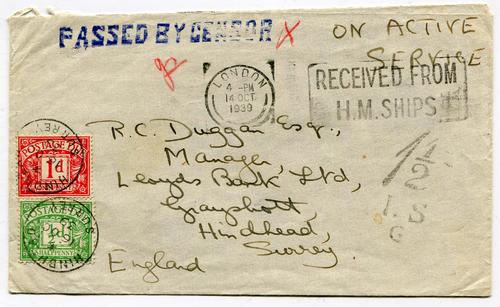 PASSED BY CENSOR
ON ACTIVE
SERVICE
LONDON
4 - PM
14 OCT
1939
RECEIVED FROM
H.M. SHIPS
R. C. Duggan Esq.,
Manager,
Lloyds Bank Ltd,
Grayshott,
Hindhead,
Surrey.
England
POSTAGE DUE
1d
POSTAGE DUE
½d
HALFPENNY
1½
T. S
G